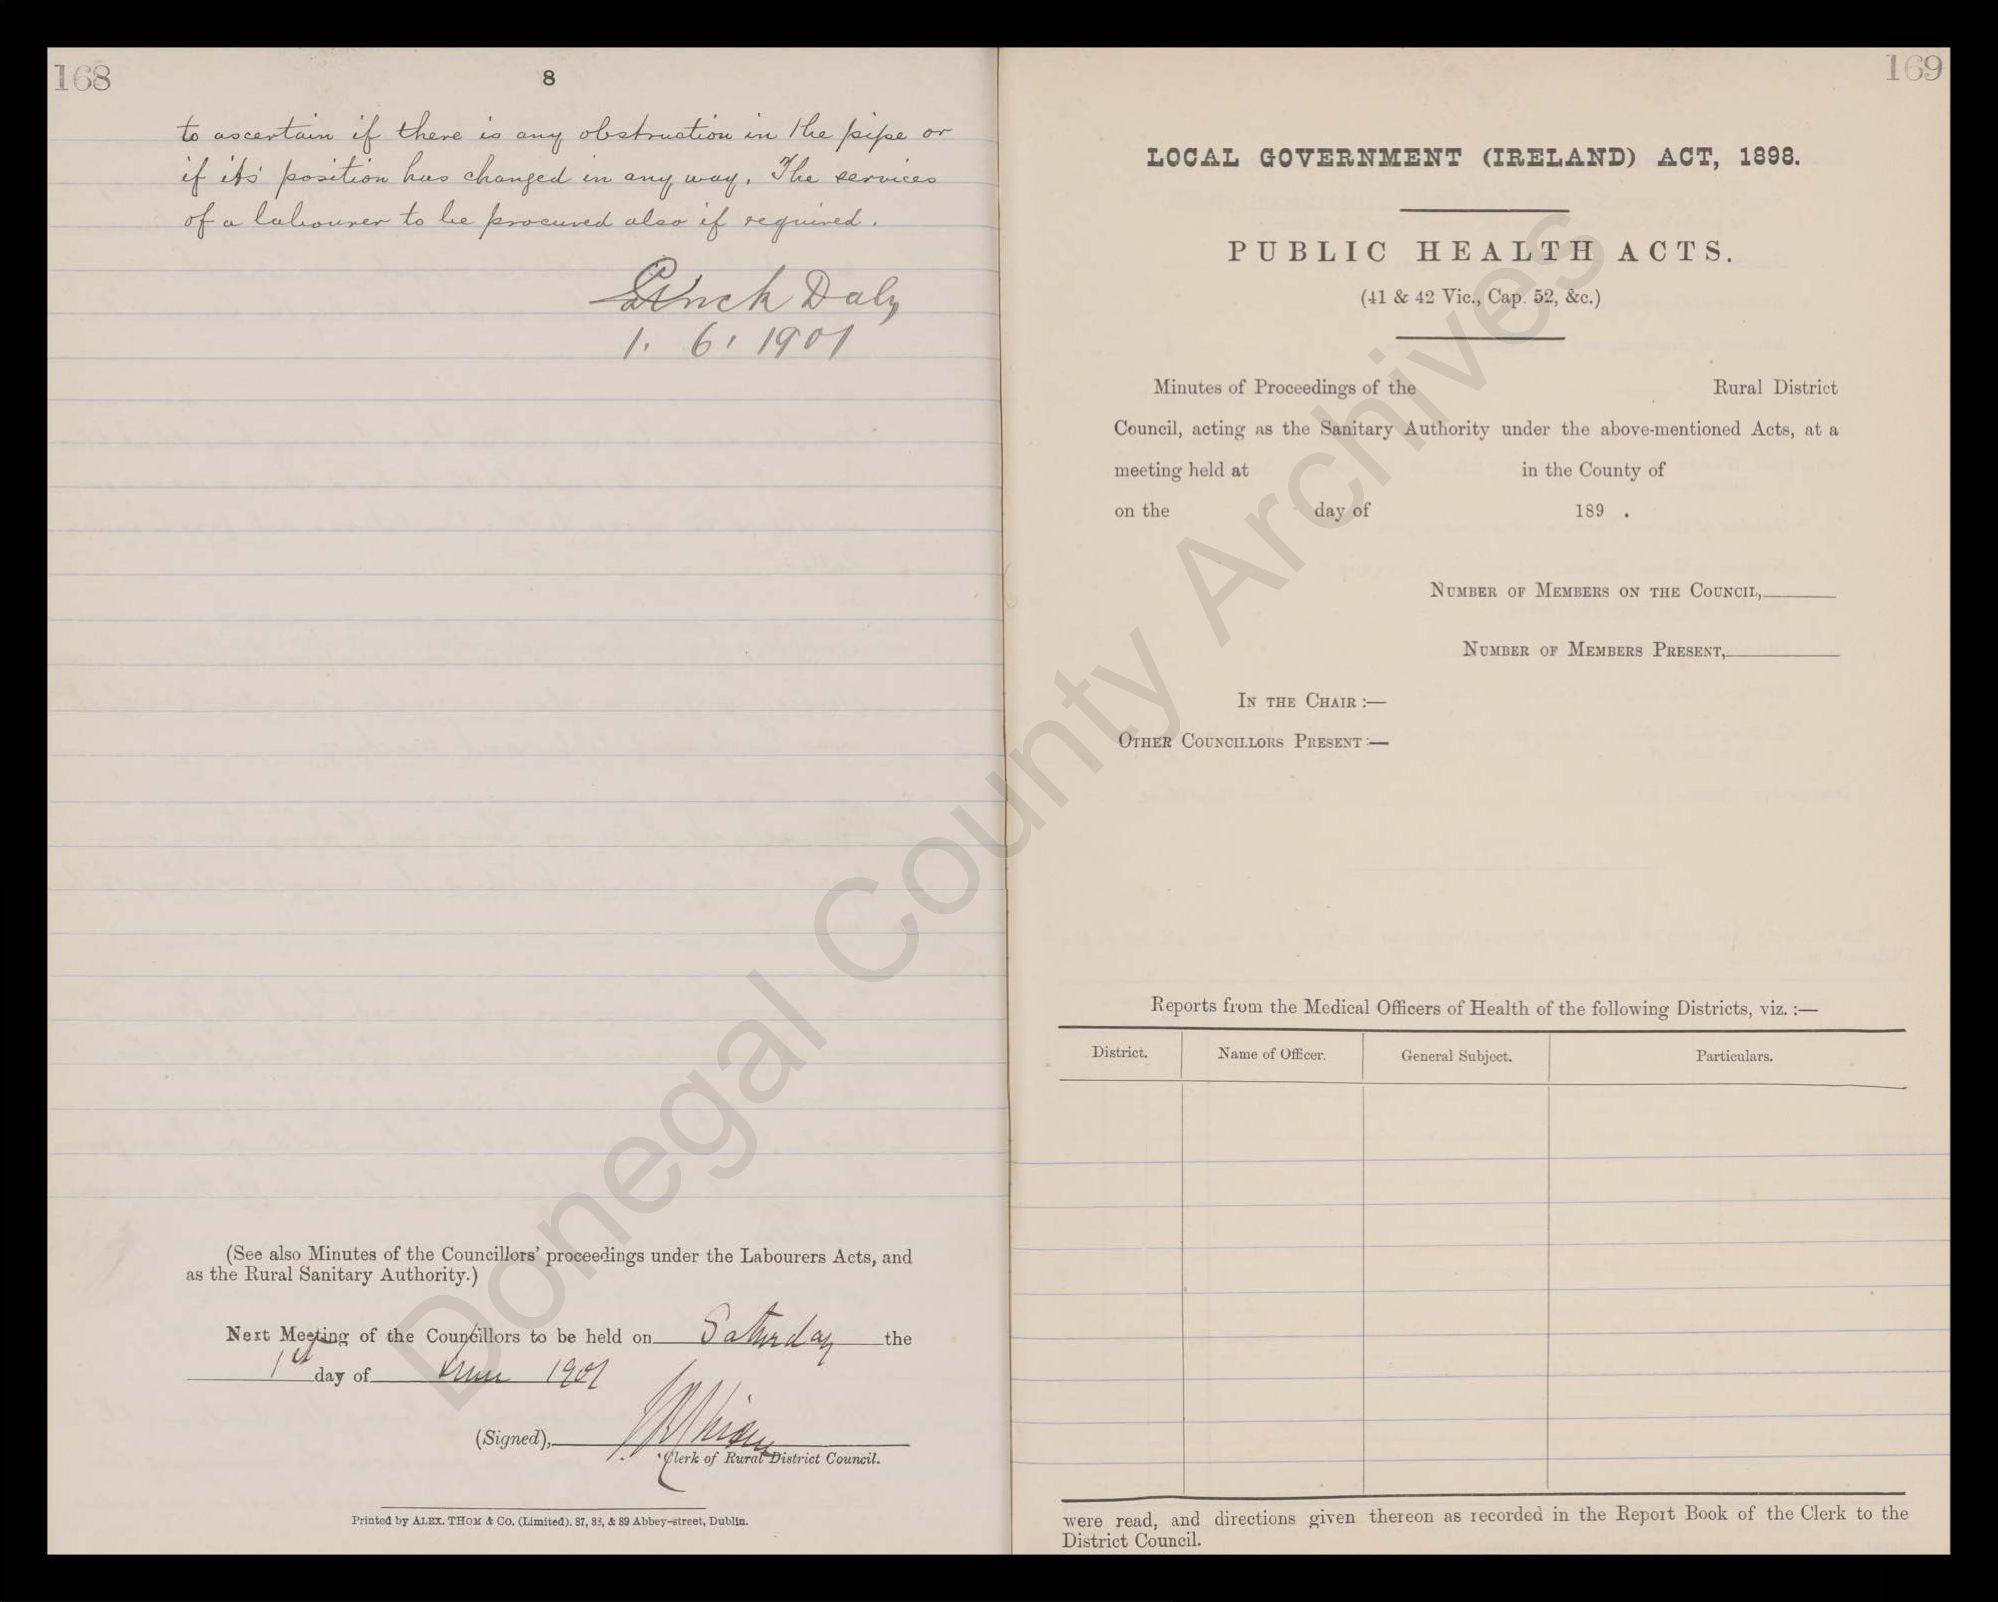 168
8
to ascertain if there is any obstruction in the pipe or
if its' position has changed in any way. The services
of a labourer to be procured also if required.
Daly
1. 6. 1901
(See also Minutes of the Councillors' proceedings under the Labourers Acts, and
as the Rural Sanitary Authority.)
Next Meeting of the Councillors to be held on Saturday the
1st day of June 1901
(Signed),
Clerk of Rural District Council.
Printed by ALEX. THOM & CO. (Limited). 87, 88, & 89 Abbey-street, Dublin.
169
LOCAL GOVERNMENT (IRELAND) ACT, 1898.
PUBLIC HEALTH ACTS.
(41 & 42 Vic., Cap. 52, &c.)
Minutes of Proceedings of the Rural District
Council, acting as the Sanitary Authority under the above-mentioned Acts, at a
meeting held at in the County of
on the day of 189 .
NUMBER OF MEMBERS ON THE COUNCIL,
NUMBER OF MEMBERS PRESENT,
IN THE CHAIR :—
OTHER COUNCILLORS PRESENT :—
Reports from the Medical Officers of Health of the following Districts, viz. :—
District. Name of Officer. General Subject. Particulars.
were read, and directions given thereon as recorded in the Report Book of the Clerk to the
District Council.
Donegal County Archives